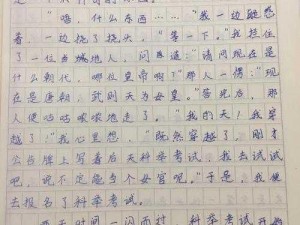 “嗯，什么东西……”我一边疑惑
着，一边挠了挠头，“等一下。”我拦住
了一位当地人，问道：“请问现在是
什么朝代，哪位皇帝啊？”那人一愣：“现
在是唐朝，武则天为女皇。”答完后，那
人便咕咕哝哝地走了。“我的天！我穿
越了！”我心里想，“既然穿越了，刚才
公告牌上写着后天科举考试，我去试试
吧，说不定能当个女官呢。”于是，我便
去报名了科举考试。
天时间一闪而过，科举考试开始